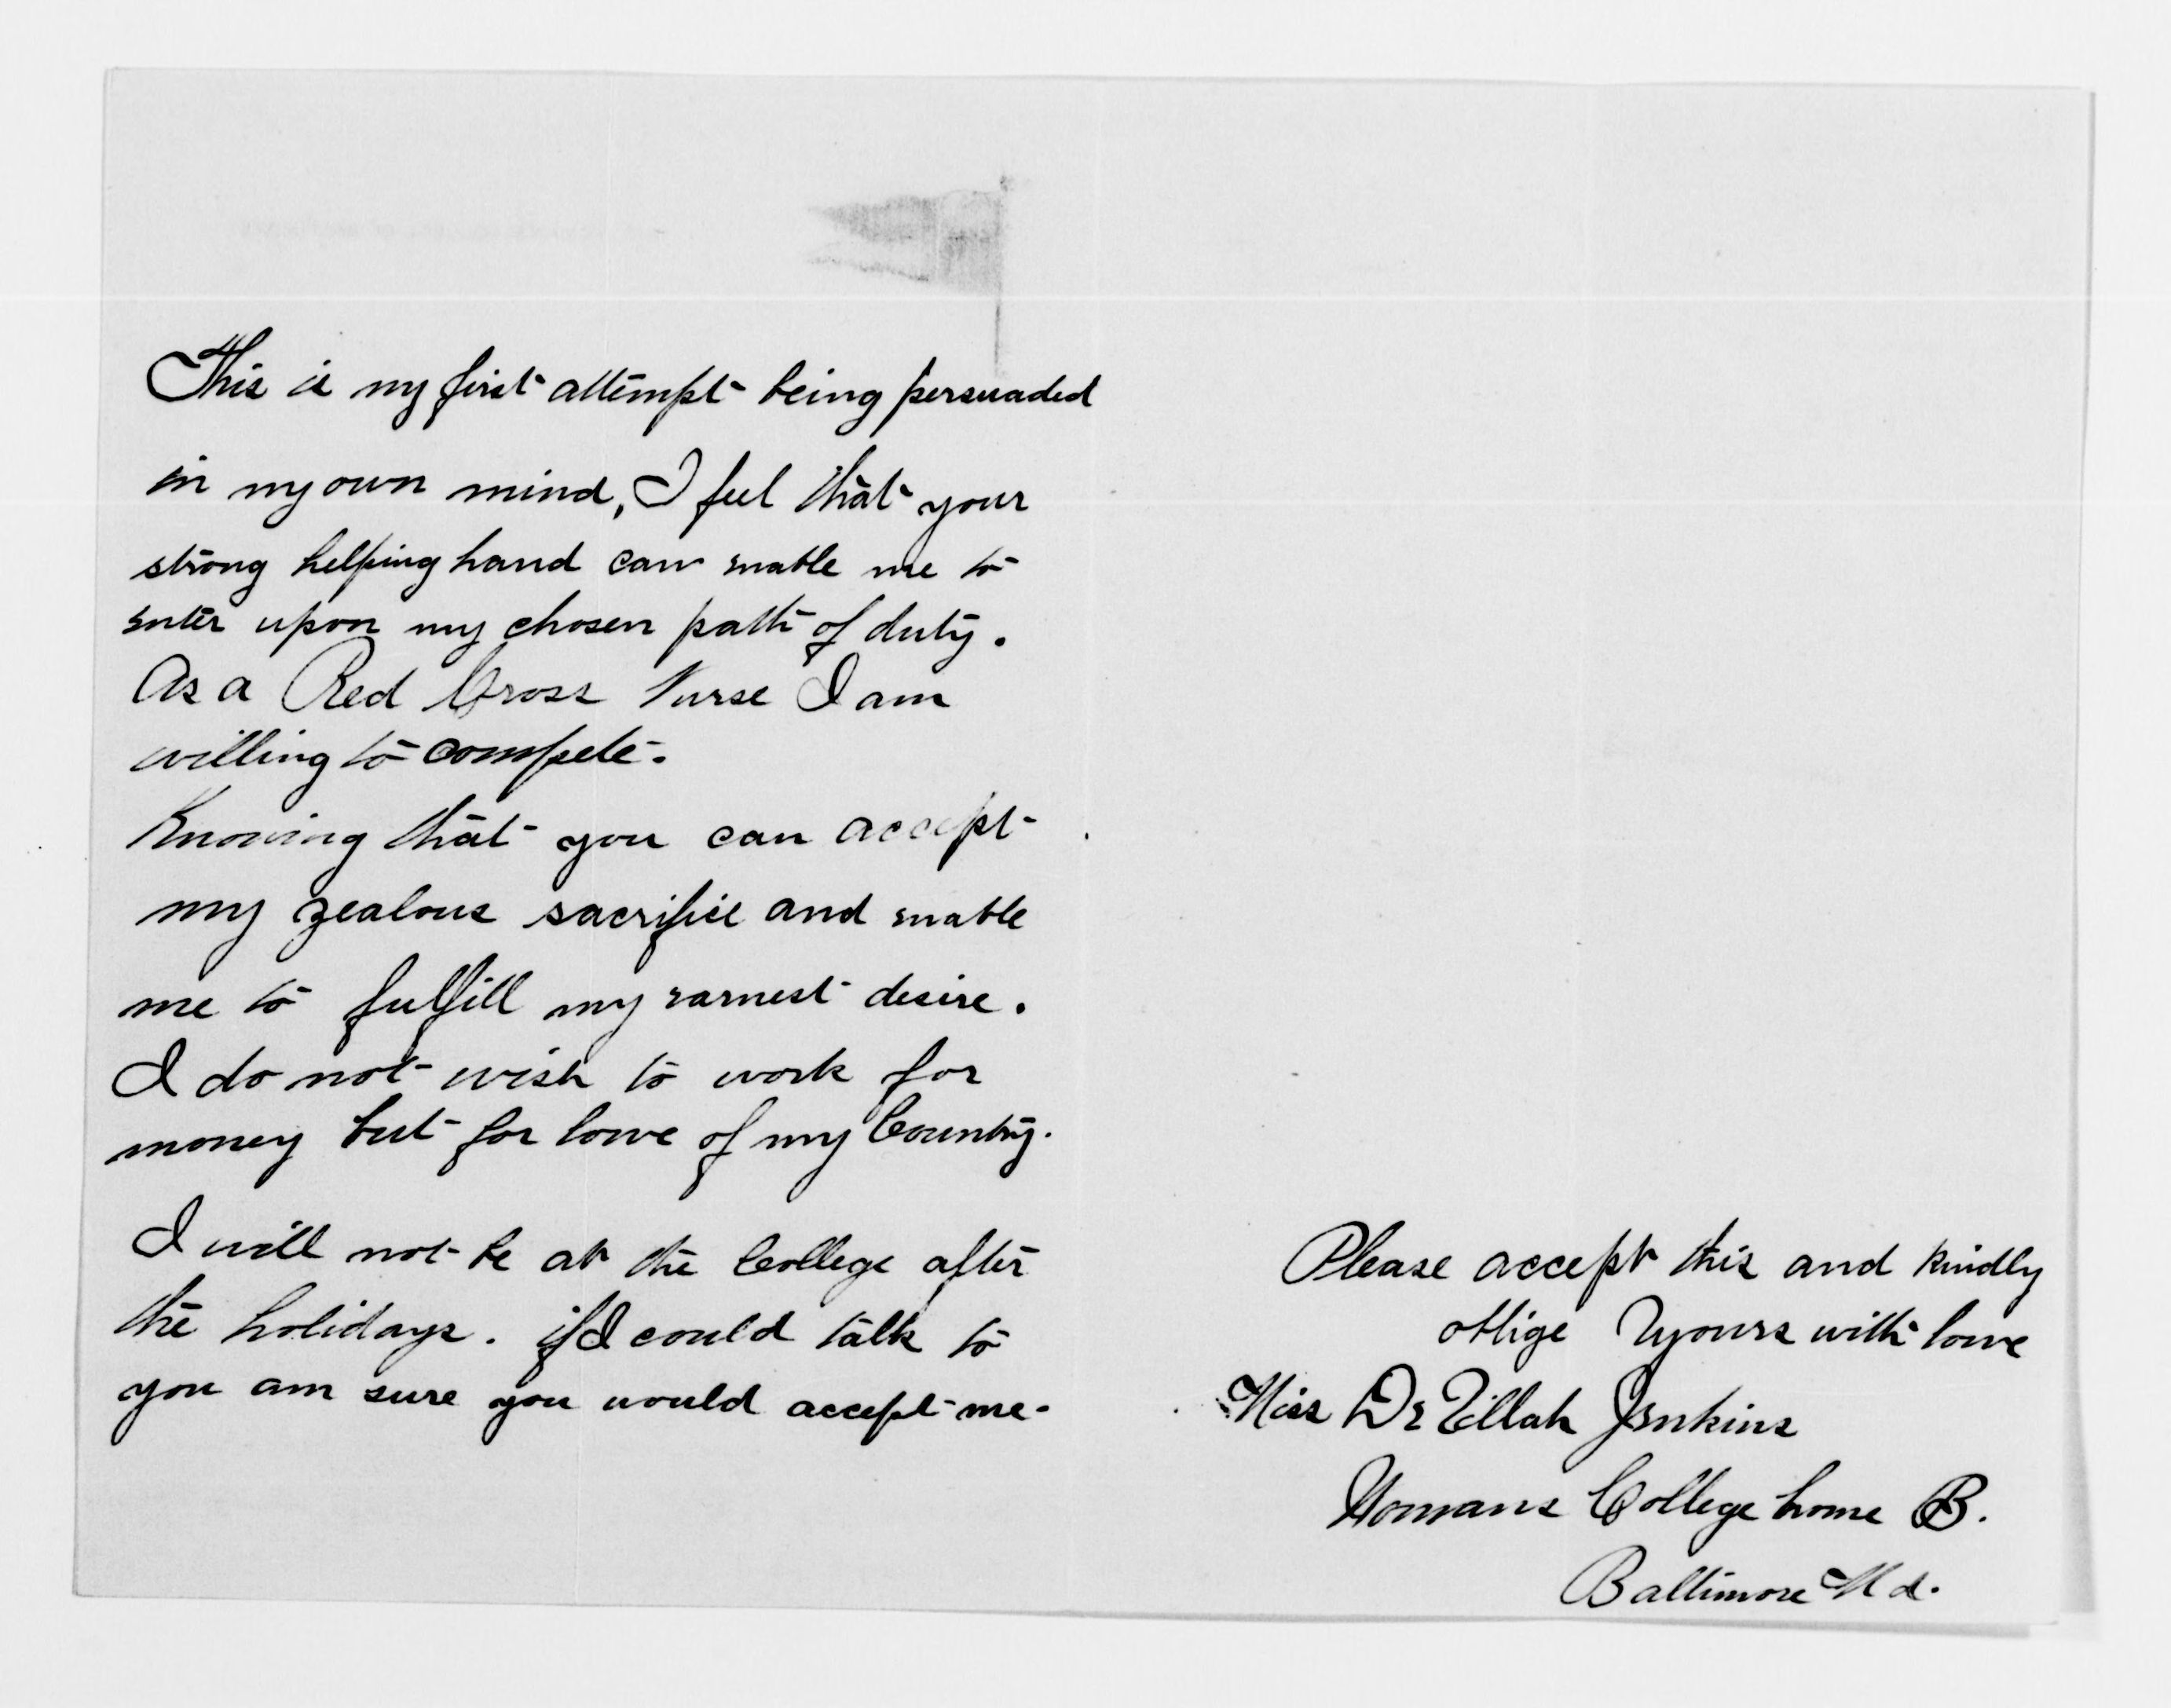 This is my first attempt being persuaded
in my own mind, I feel that your
strong helping hand can enable me to
enter upon my chosen path of duty.
As a Red Cross Nurse I am
willing to compete.
Knowing that you can accept
my zealous sacrifice and enable
me to fulfill my earnest desire.
I do not wish to work for
money but for love of my Country.
I will not be at the College after
the holidays. if I could talk to
you am sure you would accept me.
Please accept this and kindly
oblige Yours with love
Miss DeZillah Jenkins
Womans College home B.
Baltimore Md.